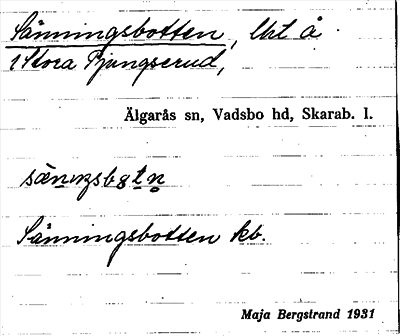 Sänningsbotten, lht å
1 Stora Pjungserud,
Älgarås sn, Vadsbo hd, Skarab. l.
Sänningsbotten kb.
Maja Bergstrand 1931